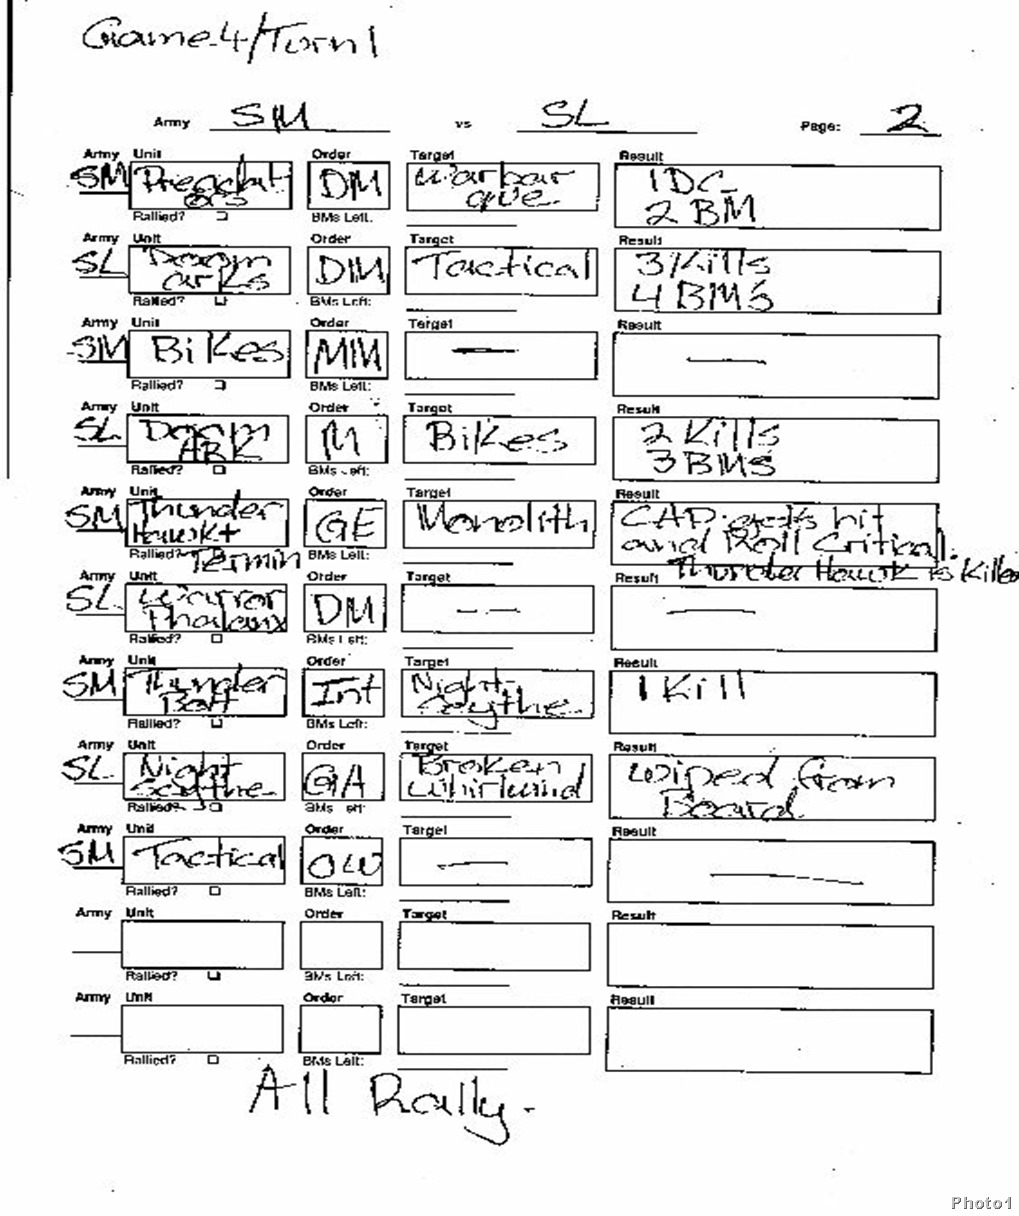 Game 4/Turn 1
Army SM vs SL Page: 2
Army Unit Order Target Result
SM Predators DM Warbarque 1 DC
2 BM
Rallied? BMs Left:
Army Unit Order Target Result
SL Doom arks DM Tactical 3 Kills
4 BMs
Rallied? BMs Left:
Army Unit Order Target Result
SM Bikes MM — —
Rallied? BMs Left:
Army Unit Order Target Result
SL Doom ARK M Bikes 2 Kills
3 BMs
Rallied? BMs Left:
Army Unit Order Target Result
SM Thunder Hawk + GE Monolith CAP hit
and Roll Critical.
Rallied? Termin BMs Left: Thunder Hawk is Killed
Army Unit Order Target Result
SL Warror Phalanx DM — — —
Rallied? BMs Left:
Army Unit Order Target Result
SM Thunder Bolt Int Night Scythe 1 Kill
Rallied? BMs Left:
Army Unit Order Target Result
SL Night Scythe GA Broken Whirlwind wiped from
Board
Rallied? BMs Left:
Army Unit Order Target Result
SM Tactical OW — —
Rallied? BMs Left:
Army Unit Order Target Result
Rallied? BMs Left:
Army Unit Order Target Result
Rallied? BMs Left:
All Rally.
Photo1